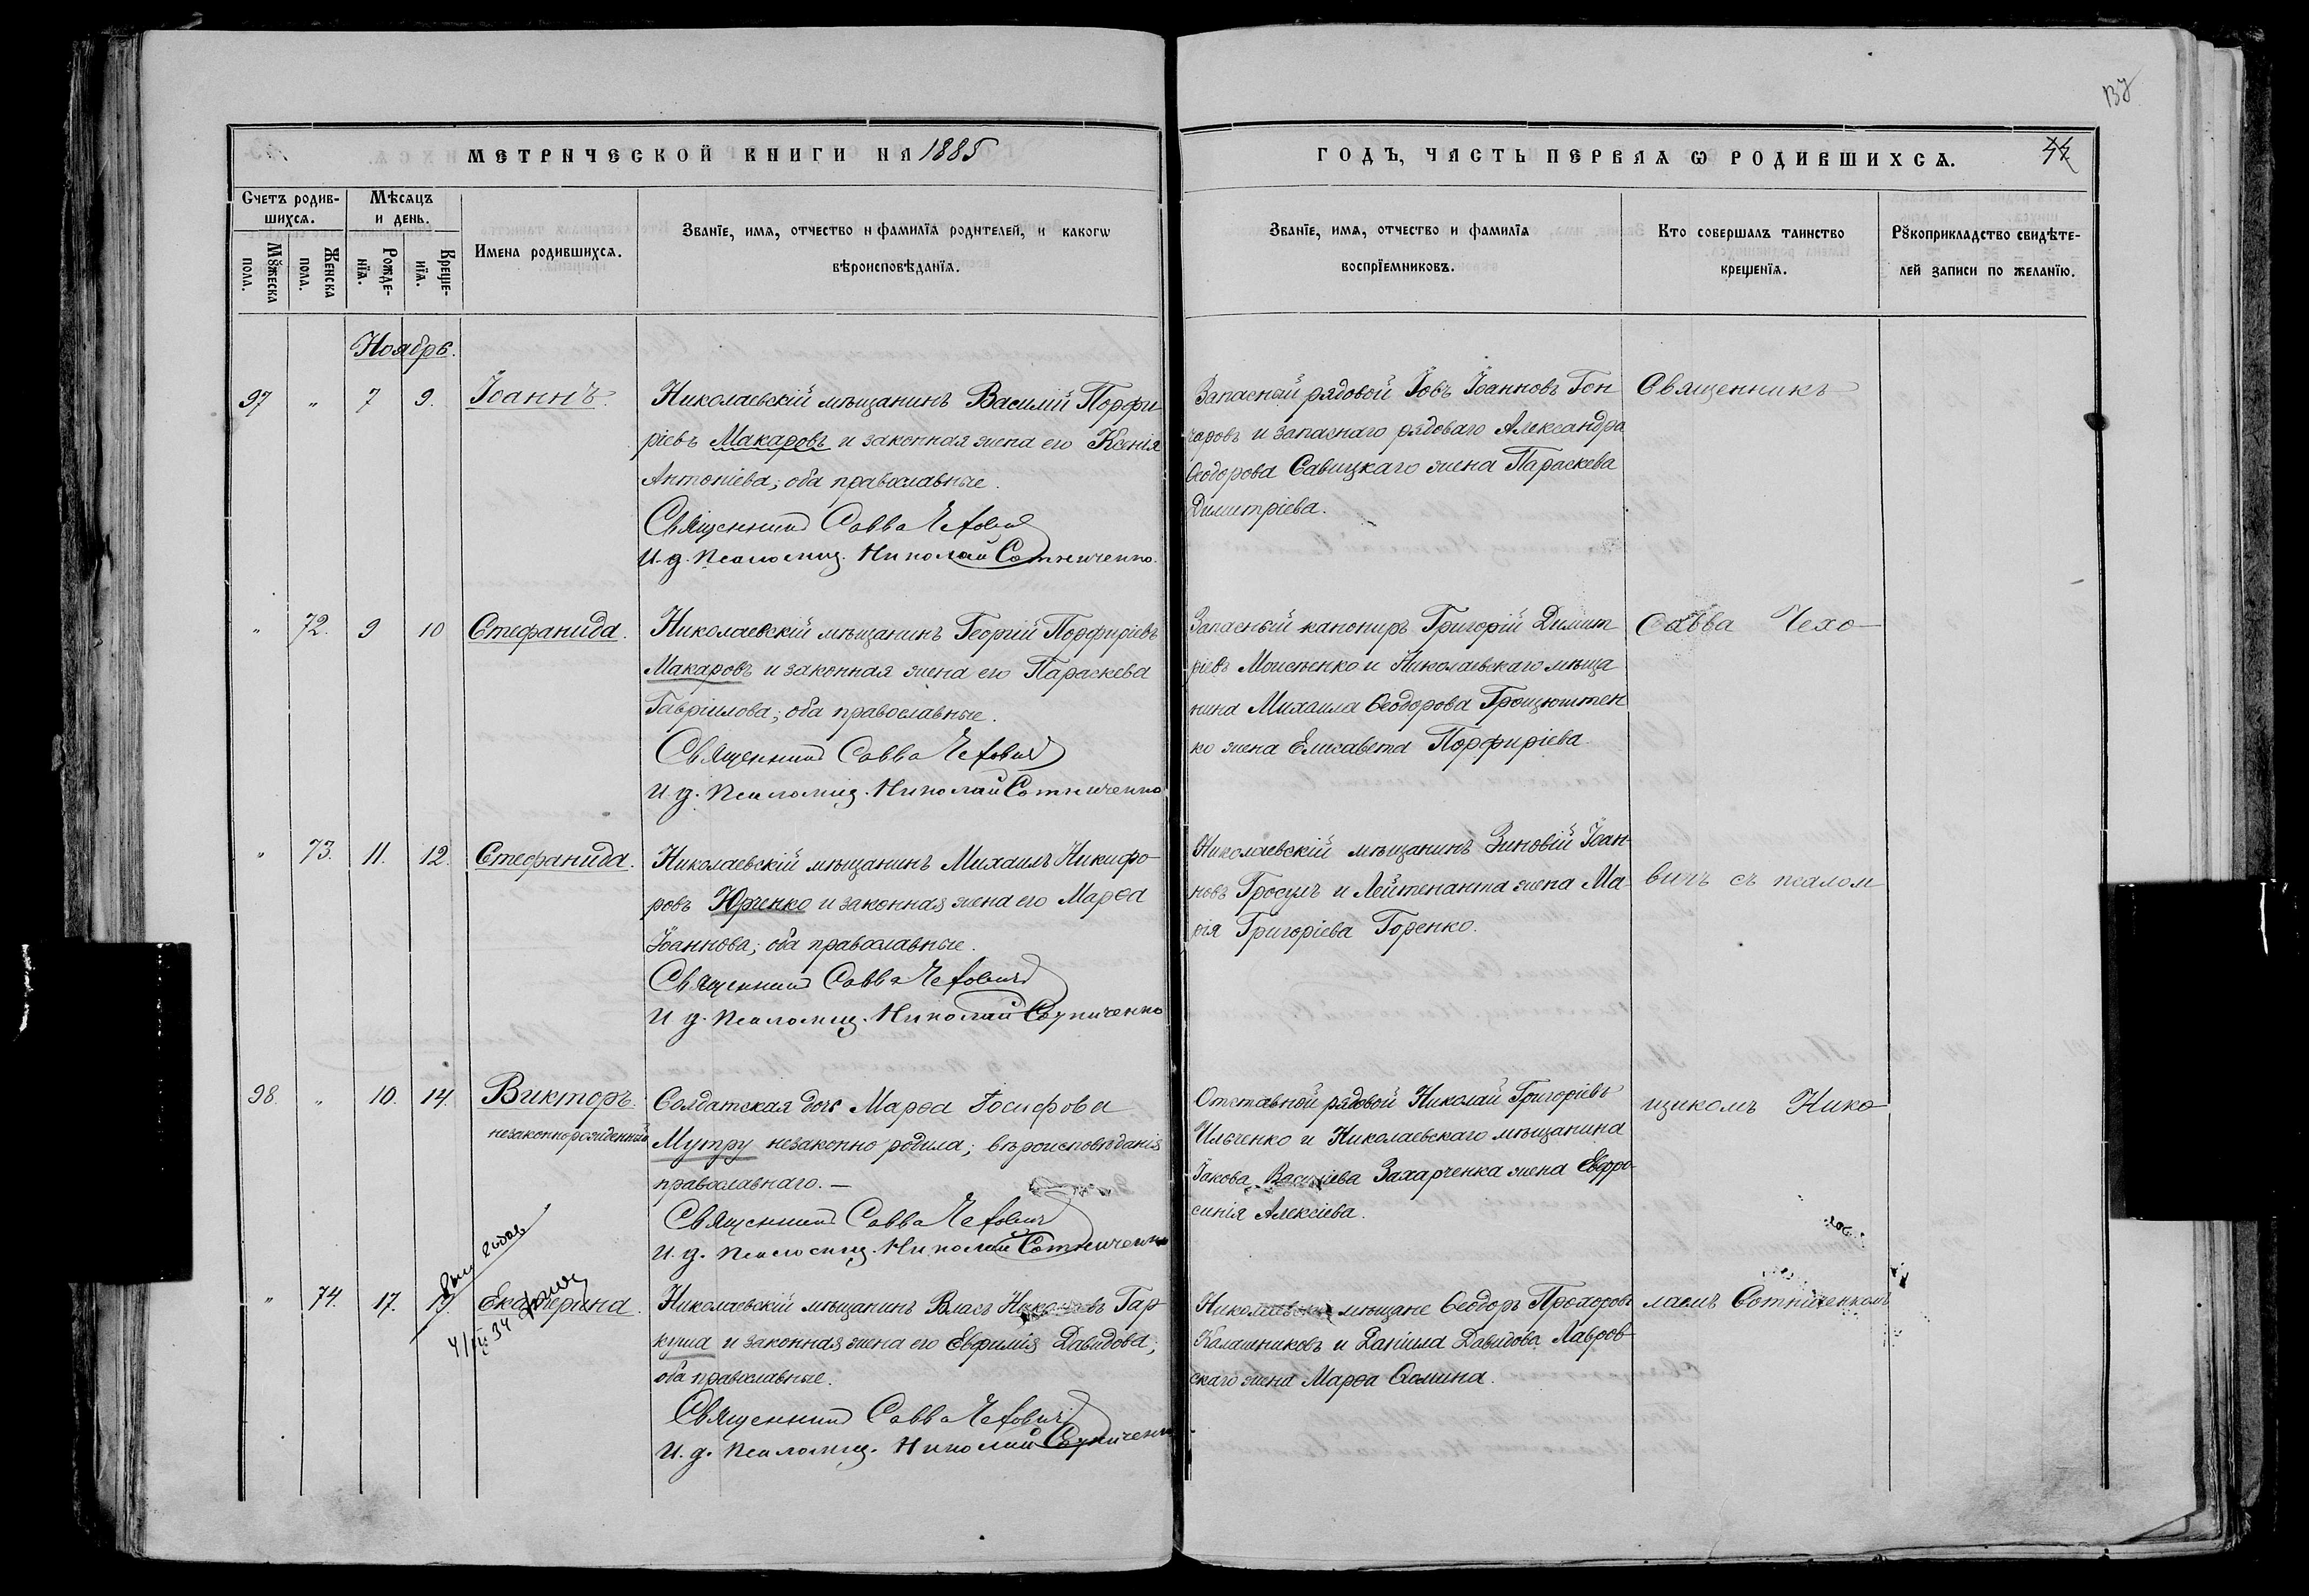 137
МЕТРИЧЕСКОЙ КНИГИ НА 1885
ГОДЪ, ЧАСТЬ ПЕРВАЯ Ѡ РОДИВШИХСѦ.
Счетъ родив-
шихсѧ.
Мꙋжеска
пола.
Женска
пола.
Мѣсѧцъ
и день.
Рожде-
нїѧ.
Креще-
нїѧ.
Имена родившихсѧ.
Званїе, имѧ, отчество и фамилїѧ родителей, и какогѡ
вѣроисповѣданїѧ.
Званїе, имѧ, отчество и фамилїѧ
воспрїемниковъ.
Кто совершалъ таинство
крещенїѧ.
Рꙋкоприкладство свидѣте-
лей записи по желанїю.
Ноябрь.
97 " 7 9. Іоаннъ.
Николаевскій мѣщанинъ Василій Порфи-
ріевъ Макаровъ и законная жена его Ксенія
Антоніева; оба православные.
Священникъ Савва Чеховичъ
И. д. псаломщ. Николай Сотниченко.
Запасный рядовой Іовъ Іоанновъ Гон
чаровъ и запаснаго рядоваго Александра
Ѳеодорова Савицкаго жена Параскева
Димитріева.
Священникъ
" 72. 9 10 Стефанида.
Николаевскій мѣщанинъ Георгій Порфиріевъ
Макаровъ и законная жена его Параскева
Гавріилова; оба православные.
Священникъ Савва Чеховичъ
И. д. псаломщ. Николай Сотниченко
Запасный канониръ Григорій Димит
ріевъ Моисѣенко и Николаевскаго мѣща
нина Михаила Ѳеодорова
ко жена Елисавета Порфиріева.
Савва Чехо-
" 73. 11. 12. Стефанида.
Николаевскій мѣщанинъ Михаилъ Никифо-
ровъ Юрченко и законная жена его Марѳа
Іоаннова; оба православные.
Священникъ Савва Чеховичъ
И. д. псаломщ. Николай Сотниченко
Николаевскій мѣщанинъ Зиновій Іоан-
новъ Гросулъ и Лейтенанта жена Ма-
рія Григоріева Горенко.
вичъ съ псалом
98. " 10. 14. Викторъ.
незаконнорожденный
Солдатская дочь Марѳа Іосифова
Мутру незаконно родила; вѣроисповѣданія
православнаго. —
Священникъ Савва Чеховичъ
И. д. псаломщ. Николай Сотниченко
Отставной рядовой Николай Григорьевъ
Ильченко и Николаевскаго мѣщанина
Іакова Васильева Захарченка жена Евфро-
синія Алексіева.
щикомъ Нико
" 74. 17. 19. Екатерина.
4/III 34
Николаевскій мѣщанинъ Власъ Гар
куша и законная жена его Евфимія Давидова;
оба православные.
Священникъ Савва Чеховичъ
И. д. псаломщ. Николай Сотниченко
Николаевскіе мѣщане Ѳеодоръ Прохоровъ
Калашниковъ и Даніила Давидова Лавров-
скаго жена Марѳа Ѳомина.
лаемъ Сотниченкомъ